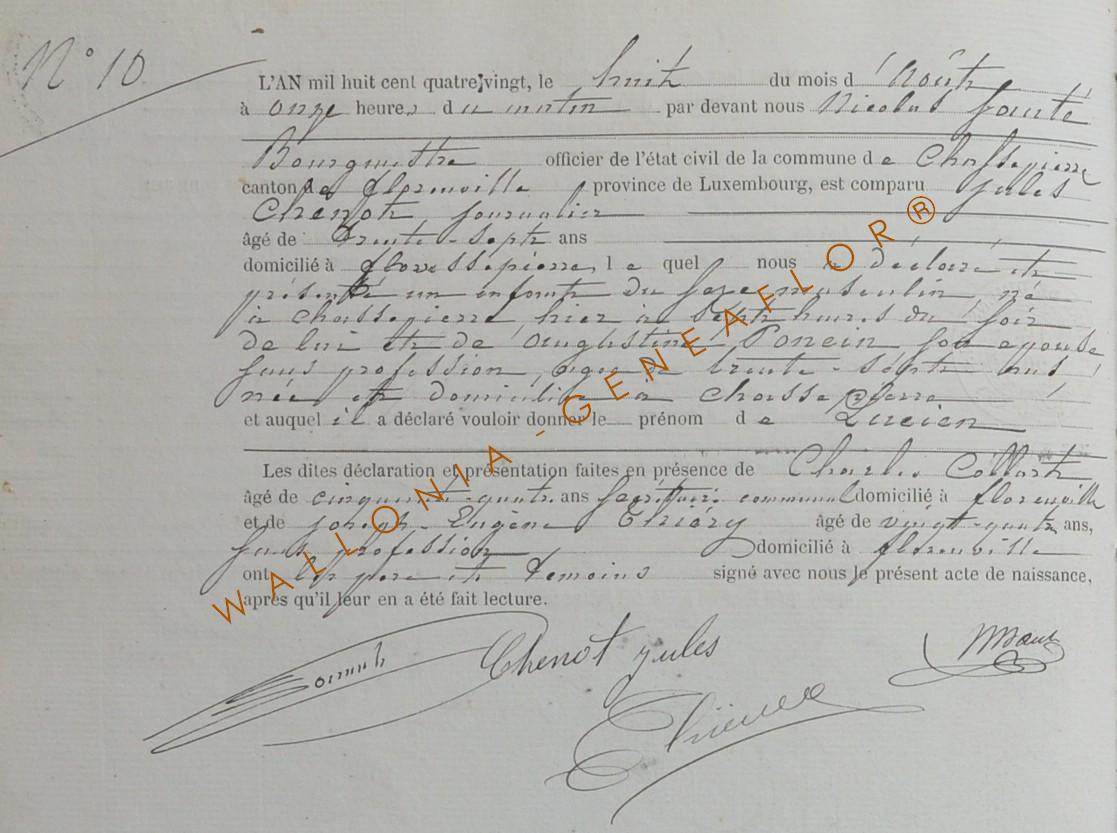 N° 10
L'AN mil huit cent quatre vingt, le huit du mois d'Août
à onze heures du matin par devant nous Nicolas
Bourgmestre officier de l'état civil de la commune de Chassepierre
canton de Florenville province de Luxembourg, est comparu Jules
Chenot, journalier
âgé de trente-sept ans
domicilié à, le quel nous a déclaré et
présenté un enfant du sexe masculin, né
à Chassepierre, hier à sept heures du soir
de lui et de Augustine Poncin son epouse
sans profession, agée de trente-sept ans
née et domiciliée à Chassepierre
et auquel il a déclaré vouloir donner le prénom de Lucien
Les dites déclaration et présentation faites en présence de Charles Collart
âgé de cinquante-quatre ans communal domicilié à Florenville
et de Joseph-Eugène Thiéry âgé de vingt-quatre ans,
sans profession domicilié à Florenville
ont les pere et temoins signé avec nous le présent acte de naissance,
après qu'il leur en a été fait lecture.
Chenot Jules
WALLONIA - GENEAFLOR®